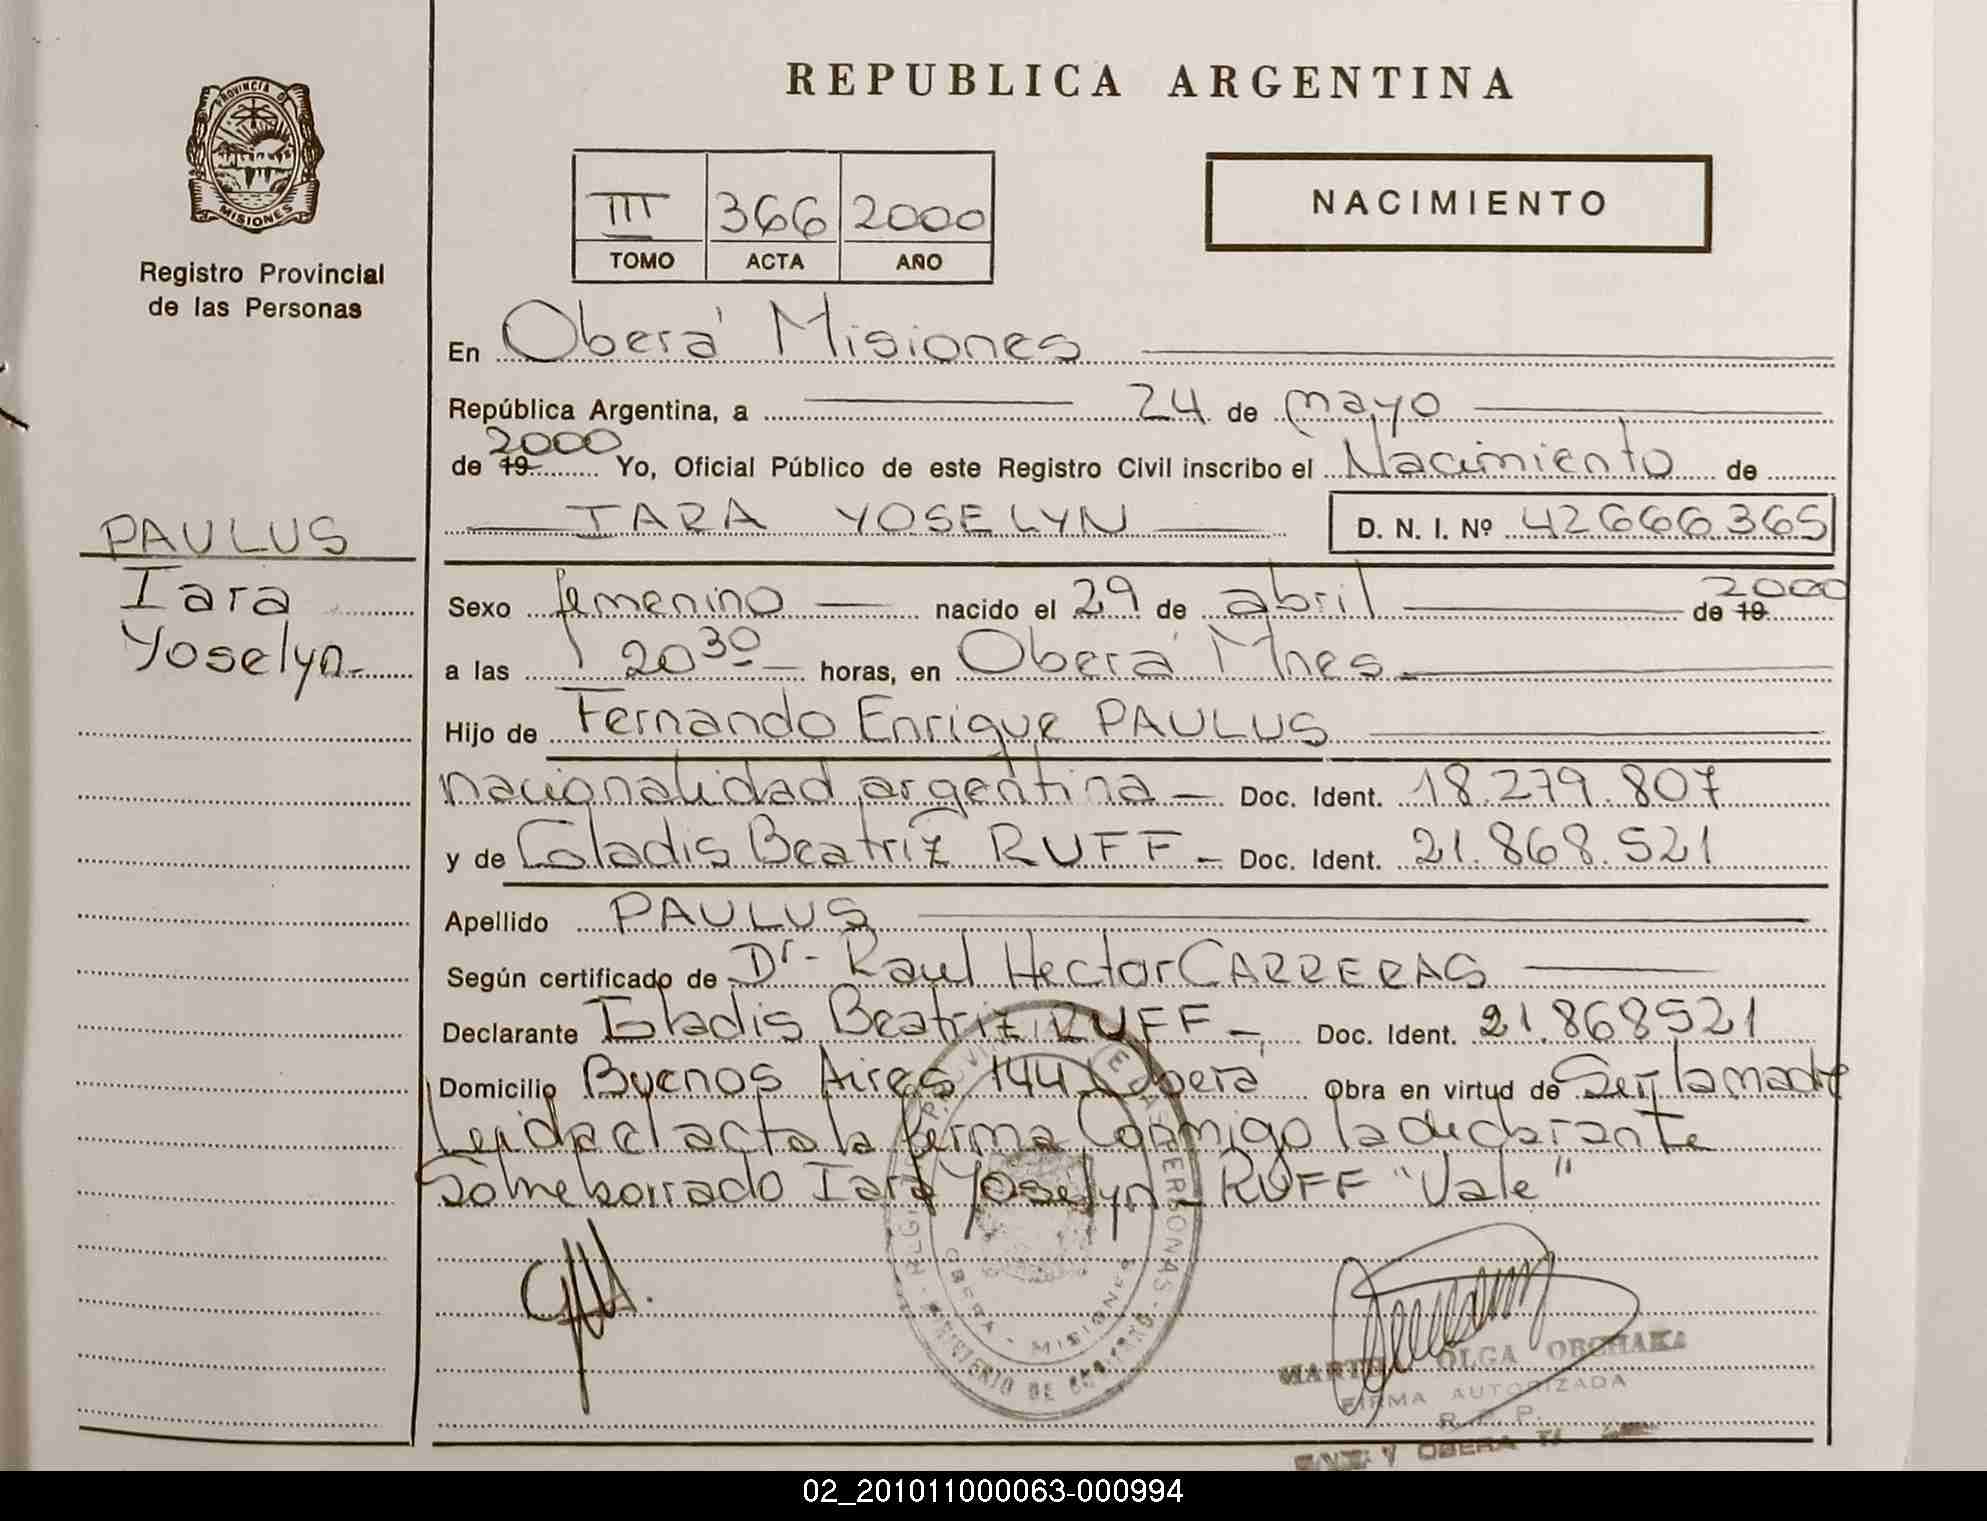 REPUBLICA ARGENTINA
PROVINCIA D MISIONES
Registro Provincial
de las Personas
III 366 2000
TOMO ACTA AÑO
NACIMIENTO
En Oberá Misiones
República Argentina, a 24 de mayo
de 19 2000 Yo, Oficial Público de este Registro Civil inscribo el Nacimiento de
IARA YOSELYN D. N. I. Nº 42666365
PAULUS
Iara
Yoselyn.-
Sexo femenino nacido el 29 de abril de 19 2000
a las 20 30 horas, en Oberá Mnes.
Hijo de Fernando Enrique PAULUS
nacionalidad argentina - Doc. Ident. 18.279.807
y de Gladis Beatriz RUFF - Doc. Ident. 21.868.521
Apellido PAULUS
Según certificado de Dr. Raul Hector CARRERAS
Declarante Gladis Beatriz RUFF - Doc. Ident. 21.868521
Domicilio Buenos Aires 144 Oberá Obra en virtud de Ser la madre
Leida el acta la firma Conmigo la declarante
Sobreborrado Iara Yoselyn - RUFF "Vale"
PERSONAS
OBERA - MISIONES
MINISTERIO DE GOBIERNO
OLGA ORCHAKA
FIRMA AUTORIZADA
R. P. P.
OBERA
02_201011000063-000994